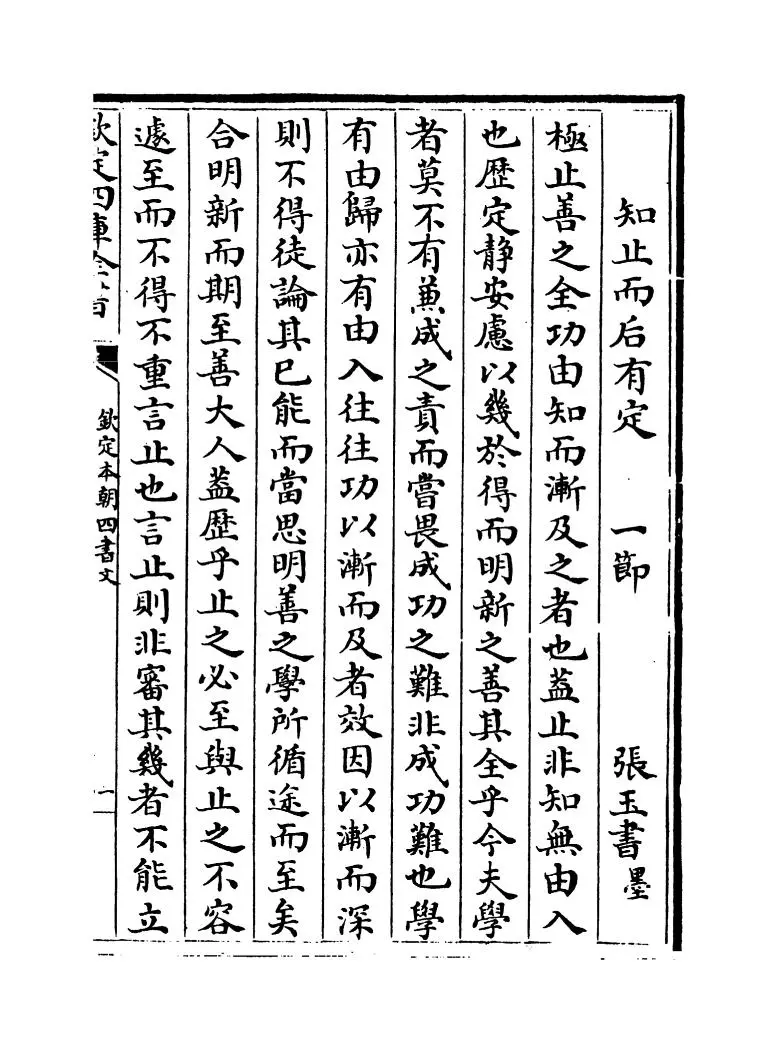 知止而后有定　一節　張玉書墨
極止善之全功由知而漸及之者也蓋止非知無由入
也歴定静安慮以幾於得而明新之善其全乎今夫學
者莫不有兼成之責而嘗畏成功之難非成功難也學
有由歸亦有由入往往功以漸而及者效因以漸而深
則不得徒論其已能而當思明善之學所循途而至矣
合明新而期至善大人蓋歴乎止之必至與止之不容
遽至而不得不重言止也言止則非審其幾者不能立
欽定四庫全書
欽定本朝四書文
一